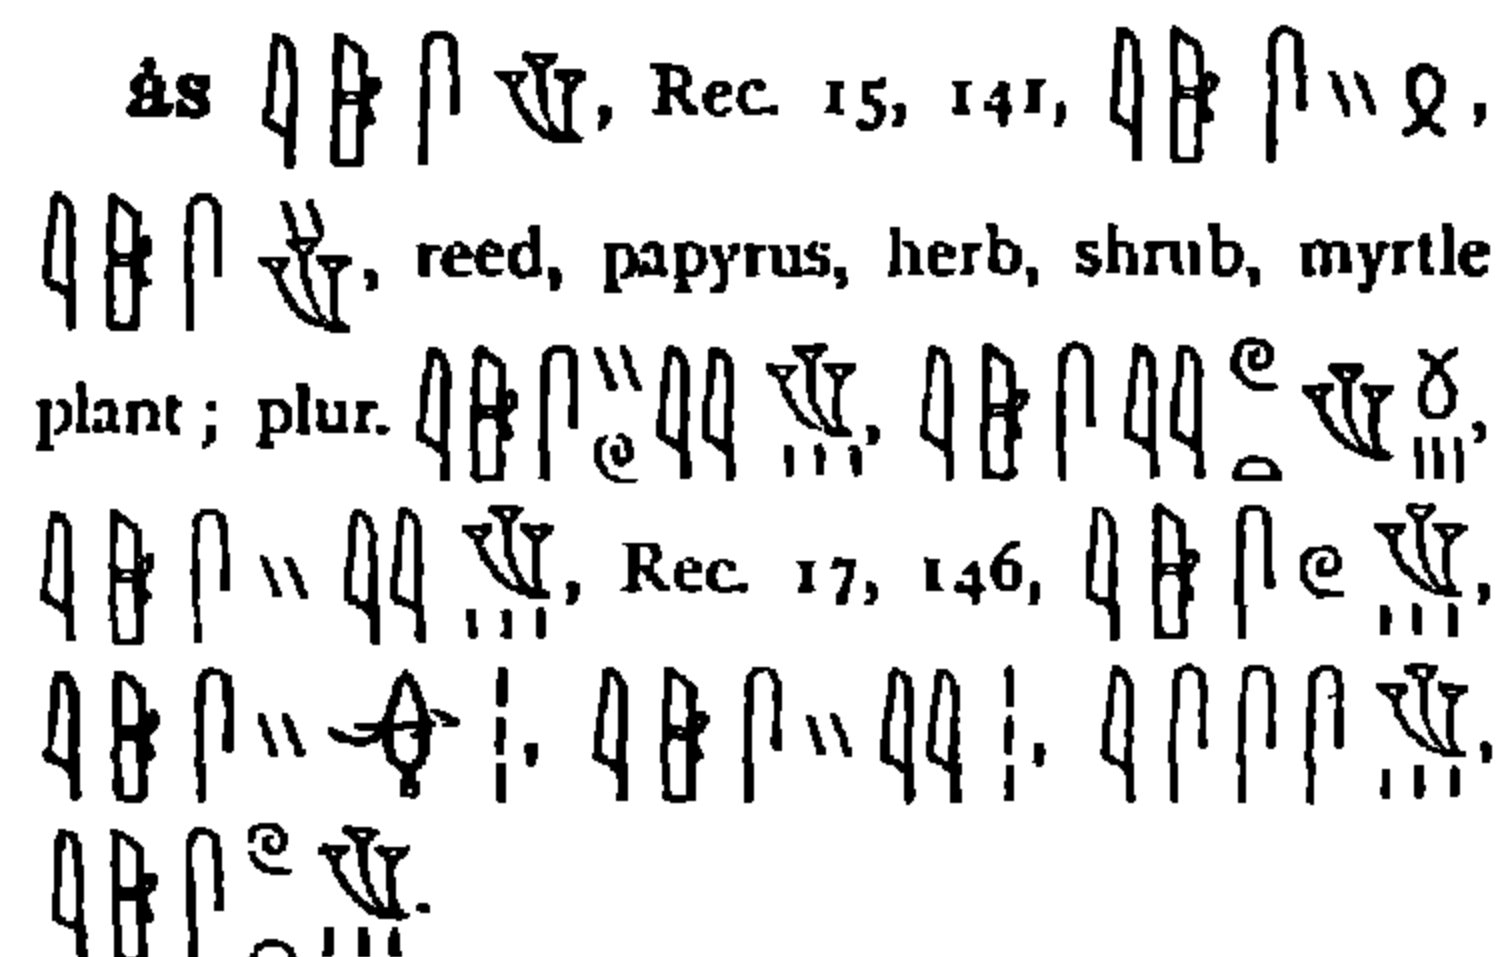 ȧs 𓇋𓇩𓋴𓆰, Rec. 15, 141, 𓇋𓇩𓋴𓏭,
𓇋𓇩𓋴𓏭𓆰, reed, papyrus, herb, shrub, myrtle
plant; plur. 𓇋𓇩𓋴𓏭𓏲𓇋𓇋𓆰𓏥, 𓇋𓇩𓋴𓇋𓇋𓏲𓏏𓆰𓏥,
𓇋𓇩𓋴𓏭𓇋𓇋𓆰𓏥, Rec. 17, 146, 𓇋𓇩𓋴𓏲𓆰𓏥,
𓇋𓇩𓋴𓏭𓏪, 𓇋𓇩𓋴𓏭𓇋𓇋𓏪, 𓇋𓋴𓋴𓋴𓆰𓏥,
𓇋𓇩𓋴𓏲𓏏𓆰𓏥.